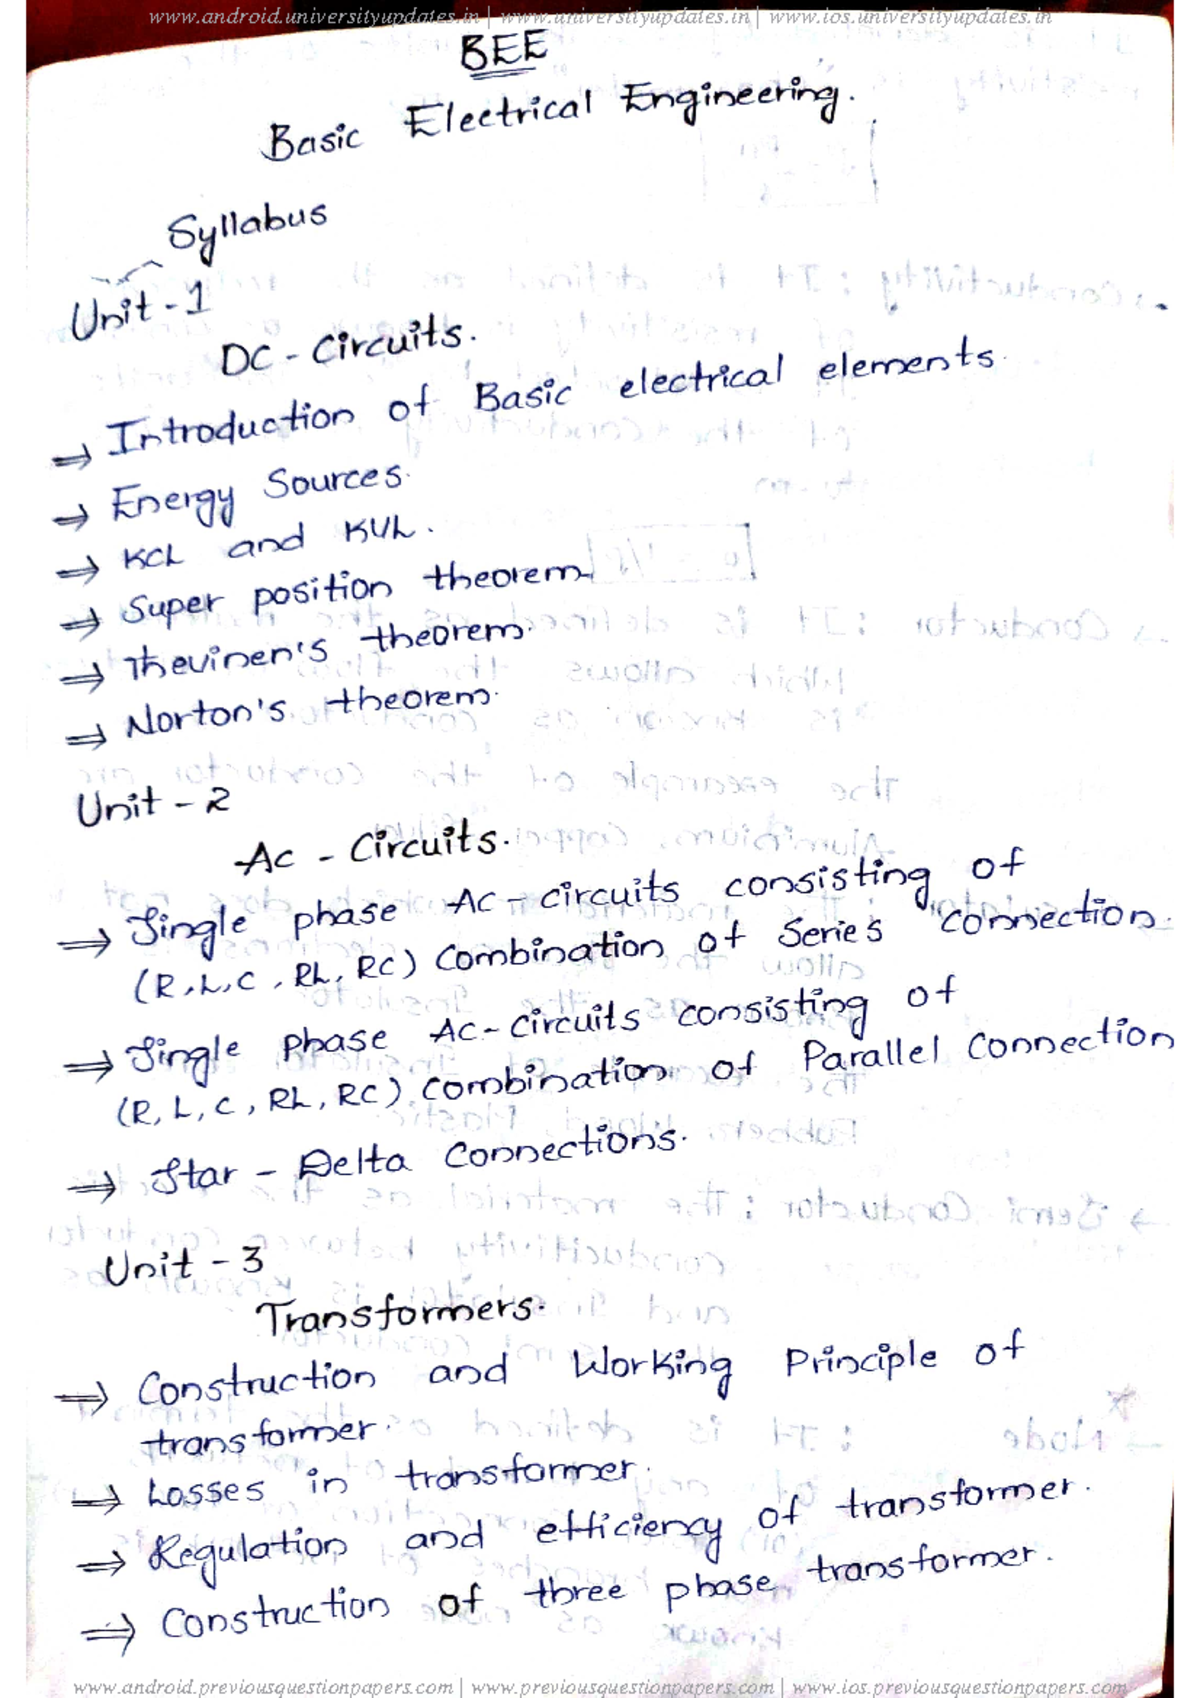 www.android.universityupdates.in | www.universityupdates.in | www.ios.universityupdates.in
BEE
Basic Electrical Engineering.
Syllabus
Unit - 1
DC - Circuits.
⇒ Introduction of Basic electrical elements.
⇒ Energy Sources.
⇒ KCL and KVL.
⇒ Super position theorem.
⇒ Thevinen's theorem.
⇒ Norton's theorem.
Unit - 2
Ac - Circuits.
⇒ Single phase Ac - circuits consisting of
(R, L, C, RL, RC) Combination of Series Connection.
⇒ Single Phase Ac - Circuits consisting of
(R, L, C, RL, RC) Combination of Parallel Connection
⇒ Star - Delta Connections.
Unit - 3
Transformers.
⇒ Construction and Working Principle of
transformer.
⇒ Losses in transformer.
⇒ Regulation and efficiency of transformer.
⇒ Construction of three phase transformer.
www.android.previousquestionpapers.com | www.previousquestionpapers.com | www.ios.previousquestionpapers.com